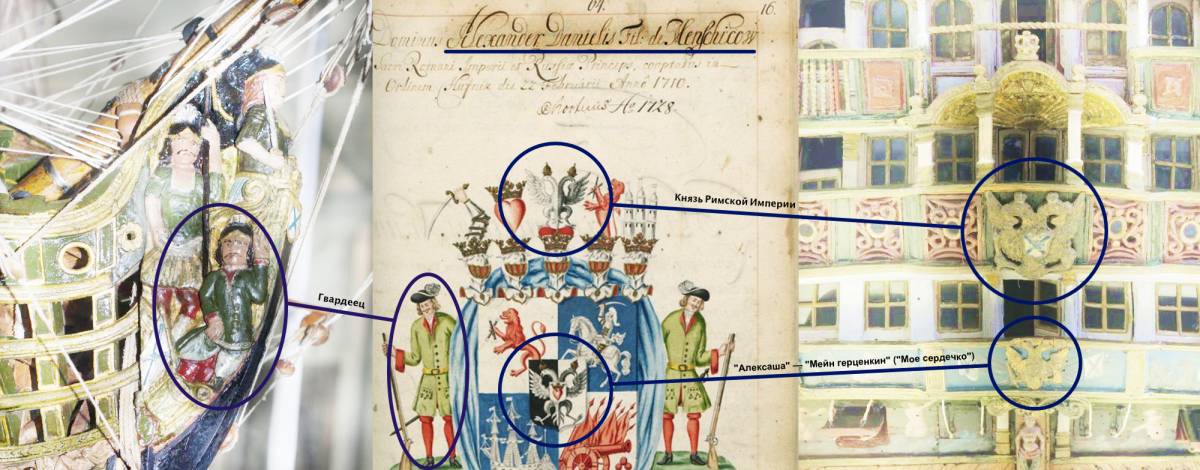 64.
16.
Dominus Alexander Danielis Fil: de Menschicow
Sacri Romani Imperii et Russiæ Princeps, cooptatus in
Ordinem die 22 Februarii Anno 1710.
Mortuus Ao 1728
Князь Римской Империи
Гвардеец
"Алексаша" — "Мейн герценкин" ("Мое сердечко")